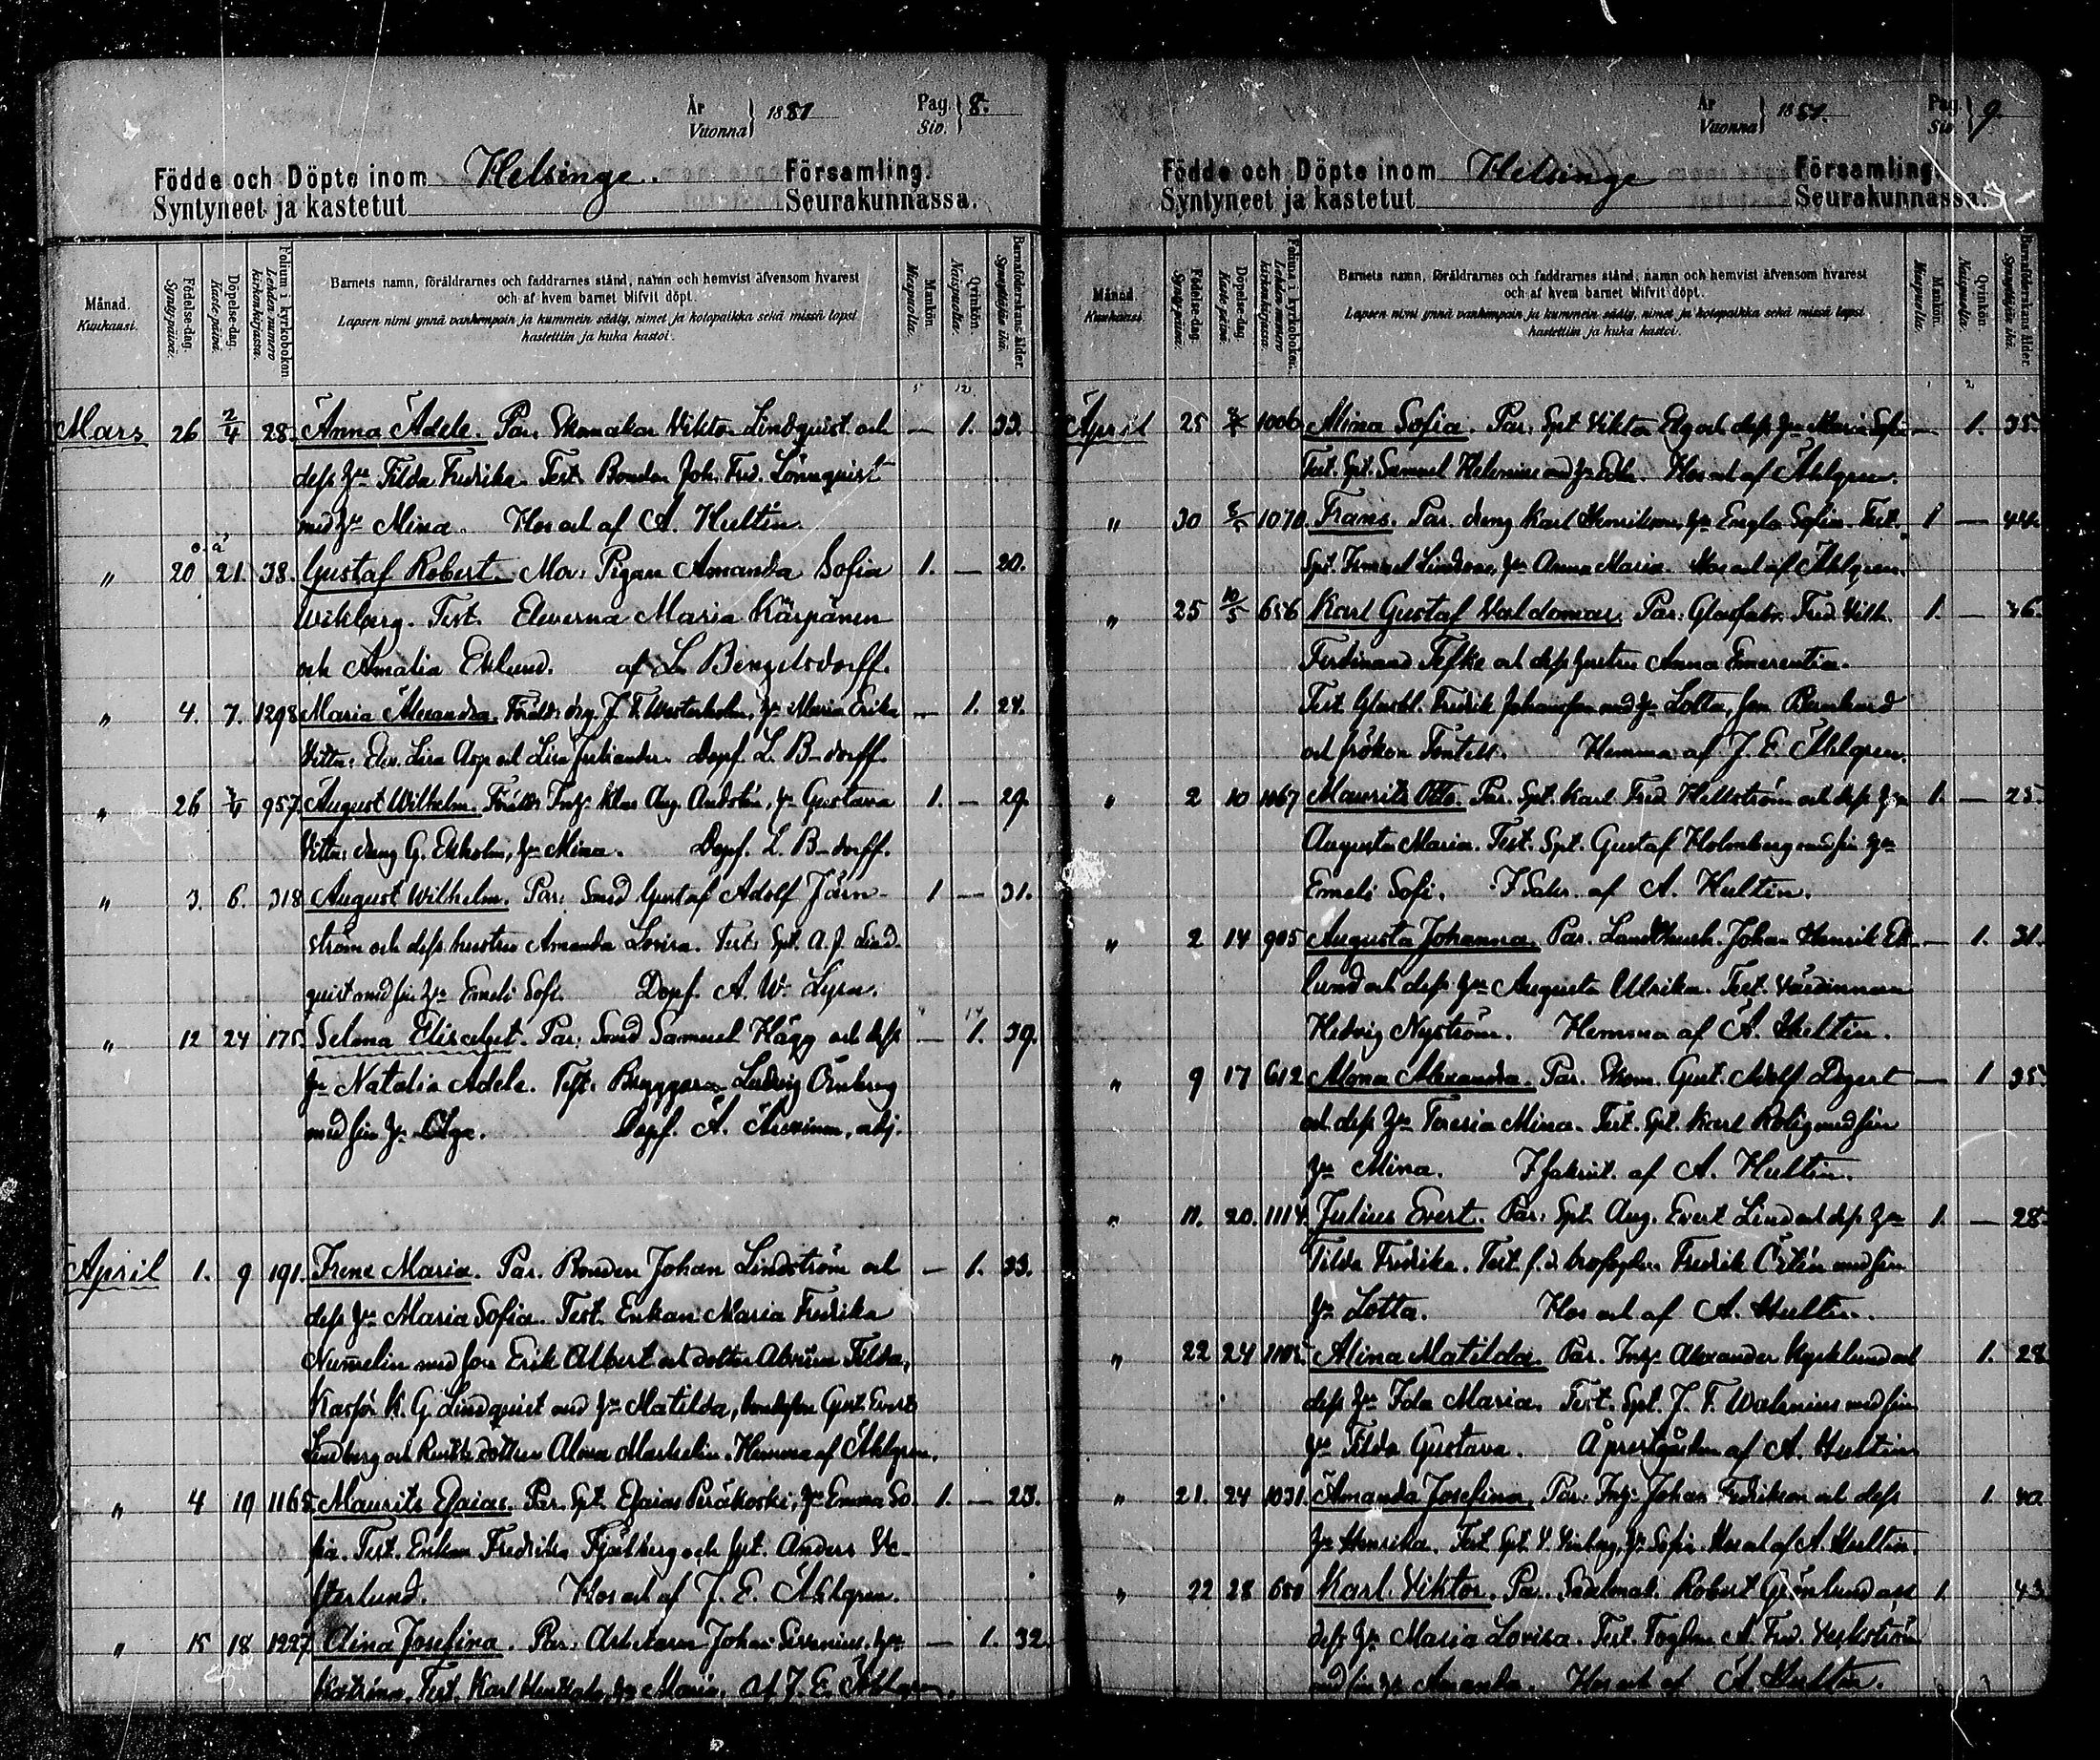 År
Vuonna } 1881
Pag.
Siv. } 8.
Födde och Döpte inom Helsinge. Församling.
Syntyneet ja kastetut Seurakunnassa.
Månad.
Kuukausi.
Födelse-dag.
Syntypäivä.
Döpelse-dag.
Kastepäivä.
Folium i kyrkoboken.
Lehden numero kirkonkirjassa.
Barnets namn, föräldrarnes och faddrarnes stånd, namn och hemvist äfvensom hvarest
och af hvem barnet blifvit döpt.
Lapsen nimi ynnä vanhempain ja kummein sääty, nimet ja kotopaikka sekä missä lapsi
kastettiin ja kuka kastoi.
Mankön.
Miespuolia.
Qvinkön.
Naispuolia.
Barnaföderskans ålder.
Synnyttäjän ikä.
Mars 26 2/4 28. Anna Adele. Par. Skomakar Viktor Lindquist och — 1. 33.
dess h:u Tilda Fredrika. Test. Bonden Joh. Fred. Lönnquist
med h:u Mina. Hos och af A. Hultin.
" 20 21. 38. Gustaf Robert. Mor: Pigan Amanda Sofia 1. — 20.
Wikberg. Test. Eleverna Maria Kärpänen
och Amalia Eklund. af L. Bengelsdorff.
" 4. 7. 1298 Maria Alexandra. Föräldr. J. F. Westerholm, h:u Maria Erika — 1. 24.
Vittn: Elev. Lisa Asp och Lisa Dopf. L. B-dorff.
" 26 957. August Wilhelm. Föräldr. Inh: Klas Aug. h:u Gustava 1. — 29.
Vittn: dreng G. Ekholm, h:u Mina. Dopf. L. B-dorff.
" 3. 6. 318 August Wilhelm. Par: Smed Gustaf Adolf Järn- 1 — 31.
ström och dess hustru Amanda Lovisa. Test: Spt. A. J. Lind-
quist med sin h:u Emeli Sofi. Dopf. A. W. Lyra.
" 12 24 175. Selma Elisabet. Par: Smed Samuel Hägg och dess — 1. 39.
h:u Natalia Adele. Test: Bryggare Ludvig Örnberg
med sin h:u Olga. Dopf. A. adj.
April 1. 9 191. Irene Maria. Par. Bonden Johan Lindström och — 1. 33.
dess h:u Maria Sofia. Test. Enkan Maria Fredrika
Nummelin med son Erik Albert och dotter Tilda,
K. G. Lindquist med h:u Matilda, bondeson Gust. Evert
Lindberg och dottren Alma Markelin. Hemma af Åhlgren.
" 4 19 1165. Maurits Esaias. Par. Spt. Esaias Peräkoski, h:u Emma So- 1. — 23.
fia. Test. Enkan Fredrika Fjälberg och spt. Anders We-
sterlund. Hos och af J. E. Åhlgren.
" 15 18 1227 Aina Josefina. Par: Arbetaren Johan h:u — 1. 32
Test. Karl h:u Maria. Af J. E. Åhlgren.
År
Vuonna } 1881.
Pag.
Siv. } 9.
Födde och Döpte inom Helsinge Församling.
Syntyneet ja kastetut Seurakunnassa.
Månad.
Kuukausi.
Födelse-dag.
Syntypäivä.
Döpelse-dag.
Kastepäivä.
Folium i kyrkoboken.
Lehden numero kirkonkirjassa.
Barnets namn, föräldrarnes och faddrarnes stånd, namn och hemvist äfvensom hvarest
och af hvem barnet blifvit döpt.
Lapsen nimi ynnä vanhempain ja kummein sääty, nimet ja kotopaikka sekä missä lapsi
kastettiin ja kuka kastoi.
Mankön.
Miespuolia.
Qvinkön.
Naispuolia.
Barnaföderskans ålder.
Synnyttäjän ikä.
April 25 1006 Mina Sofia. Par. Spt Viktor Elg och dess h:u Maria Sofia — 1. 35.
Test. Spt. Samuel Helenius med h:u Edla. Hos och af Åhlgren.
" 30 1070. Frans. Par. dreng Karl Henriksson, h:u Engla Sofia. Test. 1 — 44.
Spt. Lindroos, h:u Anna Maria. Hos och af Åhlgren.
" 25 10/5 656 Karl Gustaf Valdemar. Par. Glasfabr. Fred. Vilh. 1. — 36.
Ferdinand Tefke och dess hustru Anna Emerentia.
Test. Fredrik Johansson med h:u Lotta, Reinhard
och fröken Tentell. Hemma af J. E. Åhlgren.
" 2 10 1067 Maurits Otto. Par. Spt. Karl Fred Hellström och dess h:u 1. — 25.
Augusta Maria. Test. Spt. Gustaf Holmberg med sin h:u
Emeli Sofi. I Sakr. af A. Hultin.
" 2 14 905 Augusta Johanna. Par. Johan Henrik Ek- — 1. 31.
lund och dess h:u Augusta Ulrika. Test. Värdinnan
Hedvig Nyström. Hemma af A. Hultin.
" 9 17 612 Mona Alexandra. Par. Skom. Gust. Adolf Degert — 1 35.
och dess h:u Teresia Mina. Test. Spt. Karl Rolig med sin
h:u Mina. I sakrist. af A. Hultin.
" 11. 20. 1114. Julius Evert. Par: Spt. Aug. Evert Lind och dess h:u 1. — 28.
Tilda Fredrika. Test. f. d. Fredrik Östén med sin
h:u Lotta. Hos och af A. Hultin.
" 22 24 Alina Matilda. Par. Inh: Alexander Kyrklund och 1. 28
dess h:u Ida Maria. Test. Spt. J. F. Walenius med sin
h:u Tilda Gustava. Å prestgården af A. Hultin
" 21. 24 1031. Amanda Josefina, Par: Inh: Johan Fredrikson och dess 1. 40.
h:u Henrika. Test. Spt. h:u Sofia. Hos och af A. Hultin.
" 22 28 680 Karl Viktor. Par. Robert Grönlund och 1. 43
dess h:u Maria Lovisa. Test. A. Fred. Verkström
med sin h:u Amanda. Hos och af A. Hultin.